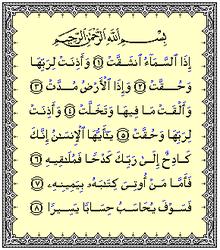 بِسْمِ ٱللَّهِ ٱلرَّحْمَٰنِ ٱلرَّحِيمِ
إِذَا ٱلسَّمَآءُ ٱنشَقَّتْ ١ وَأَذِنَتْ لِرَبِّهَا
وَحُقَّتْ ٢ وَإِذَا ٱلْأَرْضُ مُدَّتْ ٣
وَأَلْقَتْ مَا فِيهَا وَتَخَلَّتْ ٤ وَأَذِنَتْ
لِرَبِّهَا وَحُقَّتْ ٥ يَٰٓأَيُّهَا ٱلْإِنسَٰنُ إِنَّكَ
كَادِحٌ إِلَىٰ رَبِّكَ كَدْحًا فَمُلَٰقِيهِ ٦
فَأَمَّا مَنْ أُوتِىَ كِتَٰبَهُۥ بِيَمِينِهِۦ ٧
فَسَوْفَ يُحَاسَبُ حِسَابًا يَسِيرًا ٨